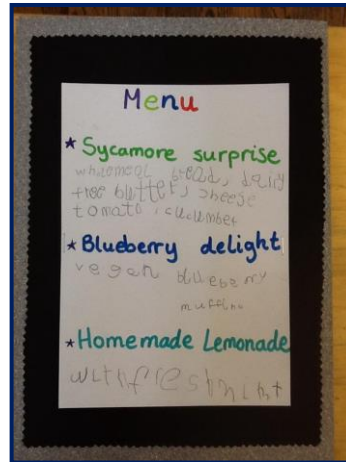 Menu
* Sycamore surprise
wholemeal bread, dairy
free butter, cheese
tomato, cucumber
* Blueberry delight
vegan blueberry
muffins
* Homemade Lemonade
with fresh mint